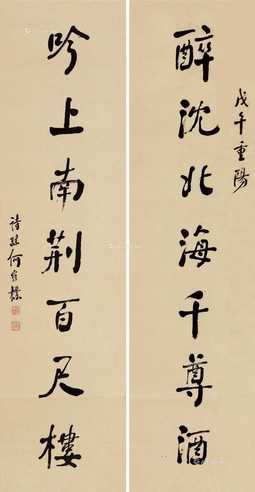 戊午重陽
醉沈北海千尊酒
吟上南荆百尺樓
詩孫何維樸